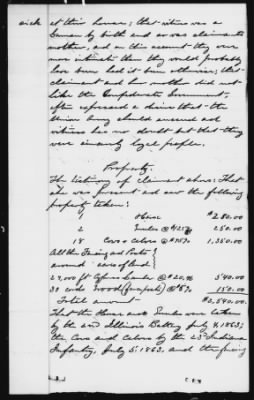 sick at this house; that witness was a
German by birth and so was claimants
mother, and on this account they were
more intimate than they would probably
have been had it been otherwise; that
claimant and her mother did not
like the Confederate Government
often expressed a desire that the
Union Army should succeed and
witness has no doubt but that they
were sincerely loyal people.
Property.
The testimony of claimant alone: That
she was present and saw the following
property taken:
1 Horse $200.00
2 Mules @ $125 250.00
18 Cows & Calves @ $75 1,350.00
All the Fencing and Posts
around
27,000 ft Cypress Lumber @ $20 540.00
30 cords Wood (fence posts) @ $5 150.00
Total amount $2,540.00
That the Horse and Mules were taken
by the 2nd Illinois Battery July 4, 1863;
the Cows and Calves by the 25th Indiana
Infantry, July 5, 1863, and the fencing